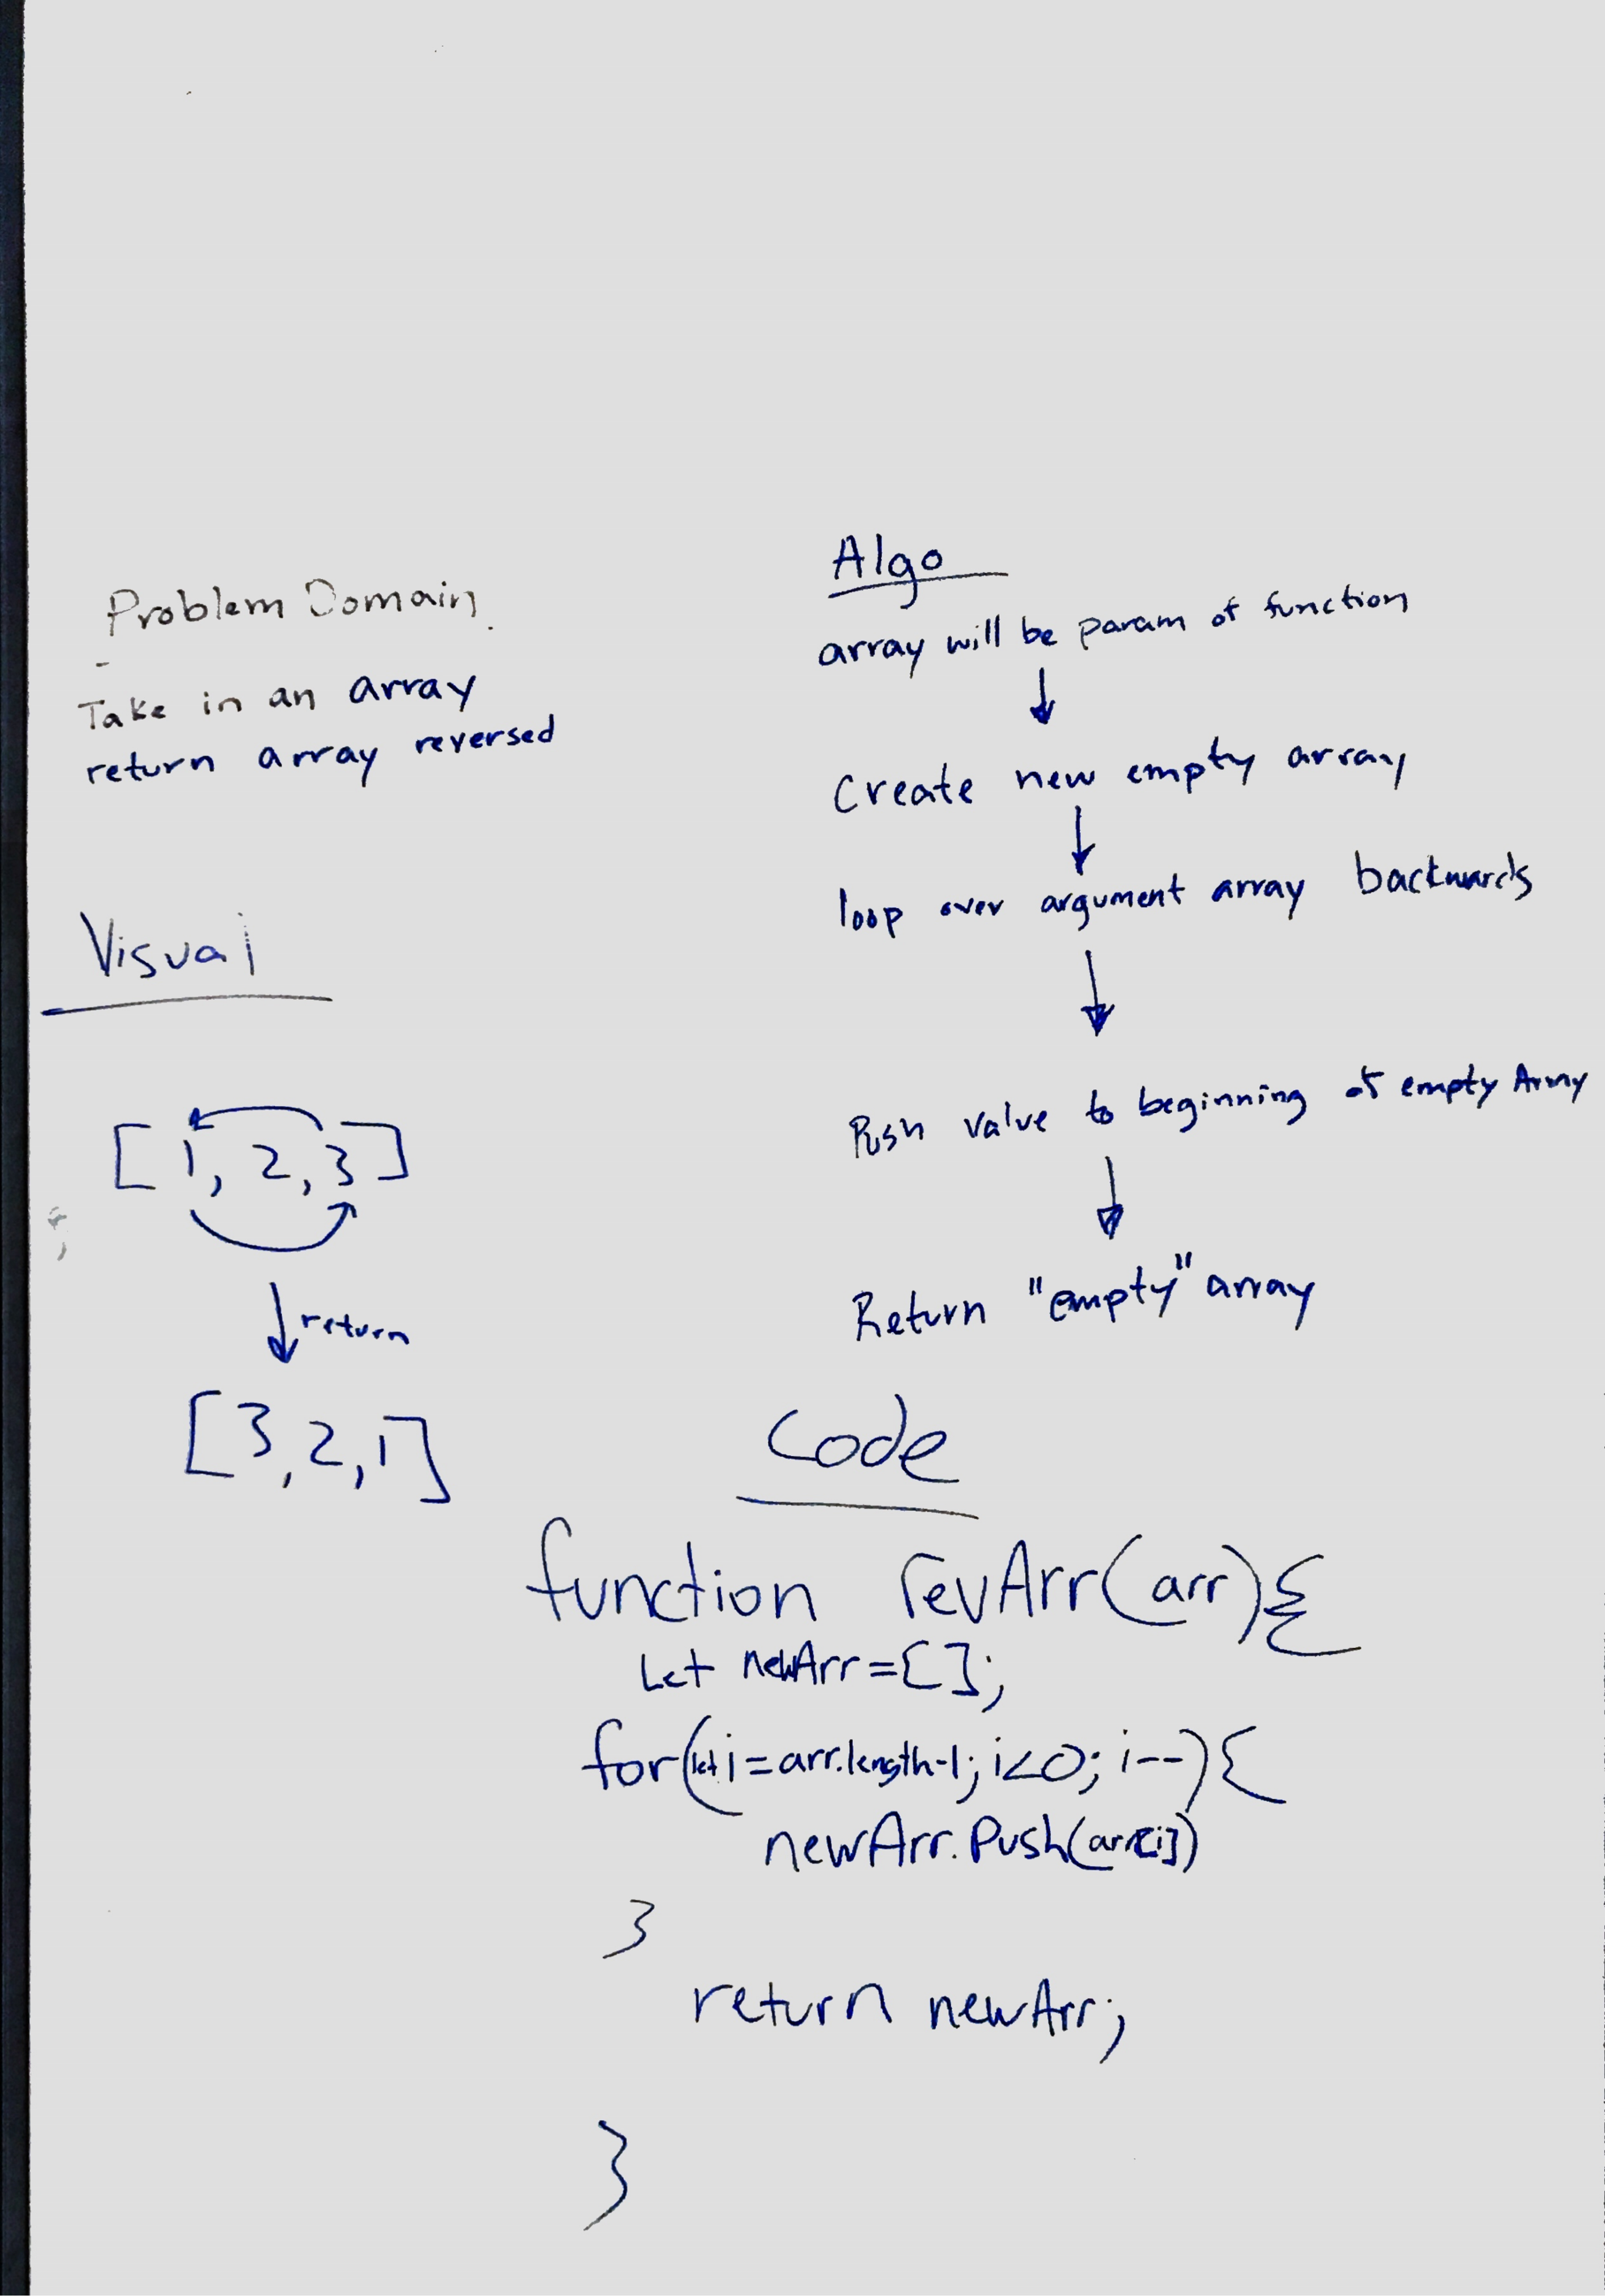 Problem Domain.
-
Take in an array
return array reversed
Visual
[1, 2, 3]
return
[3, 2, 1]
Algo
array will be param of function
Create new empty array
loop over argument array backwards
Push value to beginning of empty Array
Return "empty" array
Code
function revArr(arr){
Let newArr=[];
for(let i=arr.length-1; i<0; i--){
newArr.Push(arr[i])
}
return newArr;
}